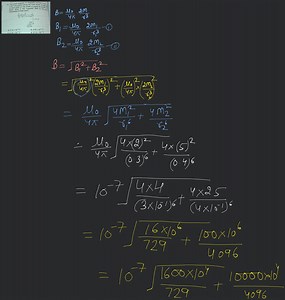 B = μ₀/4π 2M/r³
B₁ = μ₀/4π 2M₁/r₁³ —①
B₂ = μ₀/4π 2M₂/r₂³ —②
B = √(B₁² + B₂²)
= √((μ₀/4π)² (2M₁/r₁³)² + (μ₀/4π)² × (2M₂/r₂³)²)
= μ₀/4π √(4M₁²/r₁⁶ + 4M₂²/r₂⁶)
∴ μ₀/4π √(4×(2)²/(0.3)⁶ + 4×(5)²/(0.4)⁶)
= 10⁻⁷ √(4×4/(3×10⁻¹)⁶ + 4×25/(4×10⁻¹)⁶)
= 10⁻⁷ √(16×10⁶/729 + 100×10⁶/4096)
= 10⁻⁷ √(1600×10⁴/729 + 10000×10⁴/4096)